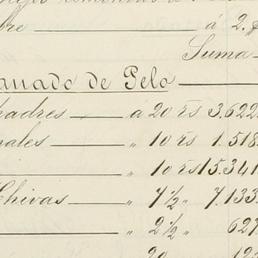 á 2.
Suma
anado de Pelo
adres — á 20 rs 3.622
ales — „ 10 rs 1.518
„ 10 rs 15.341
Chivas — „ 7½ „ 7.133
„ 2½ „ 627
„ 20